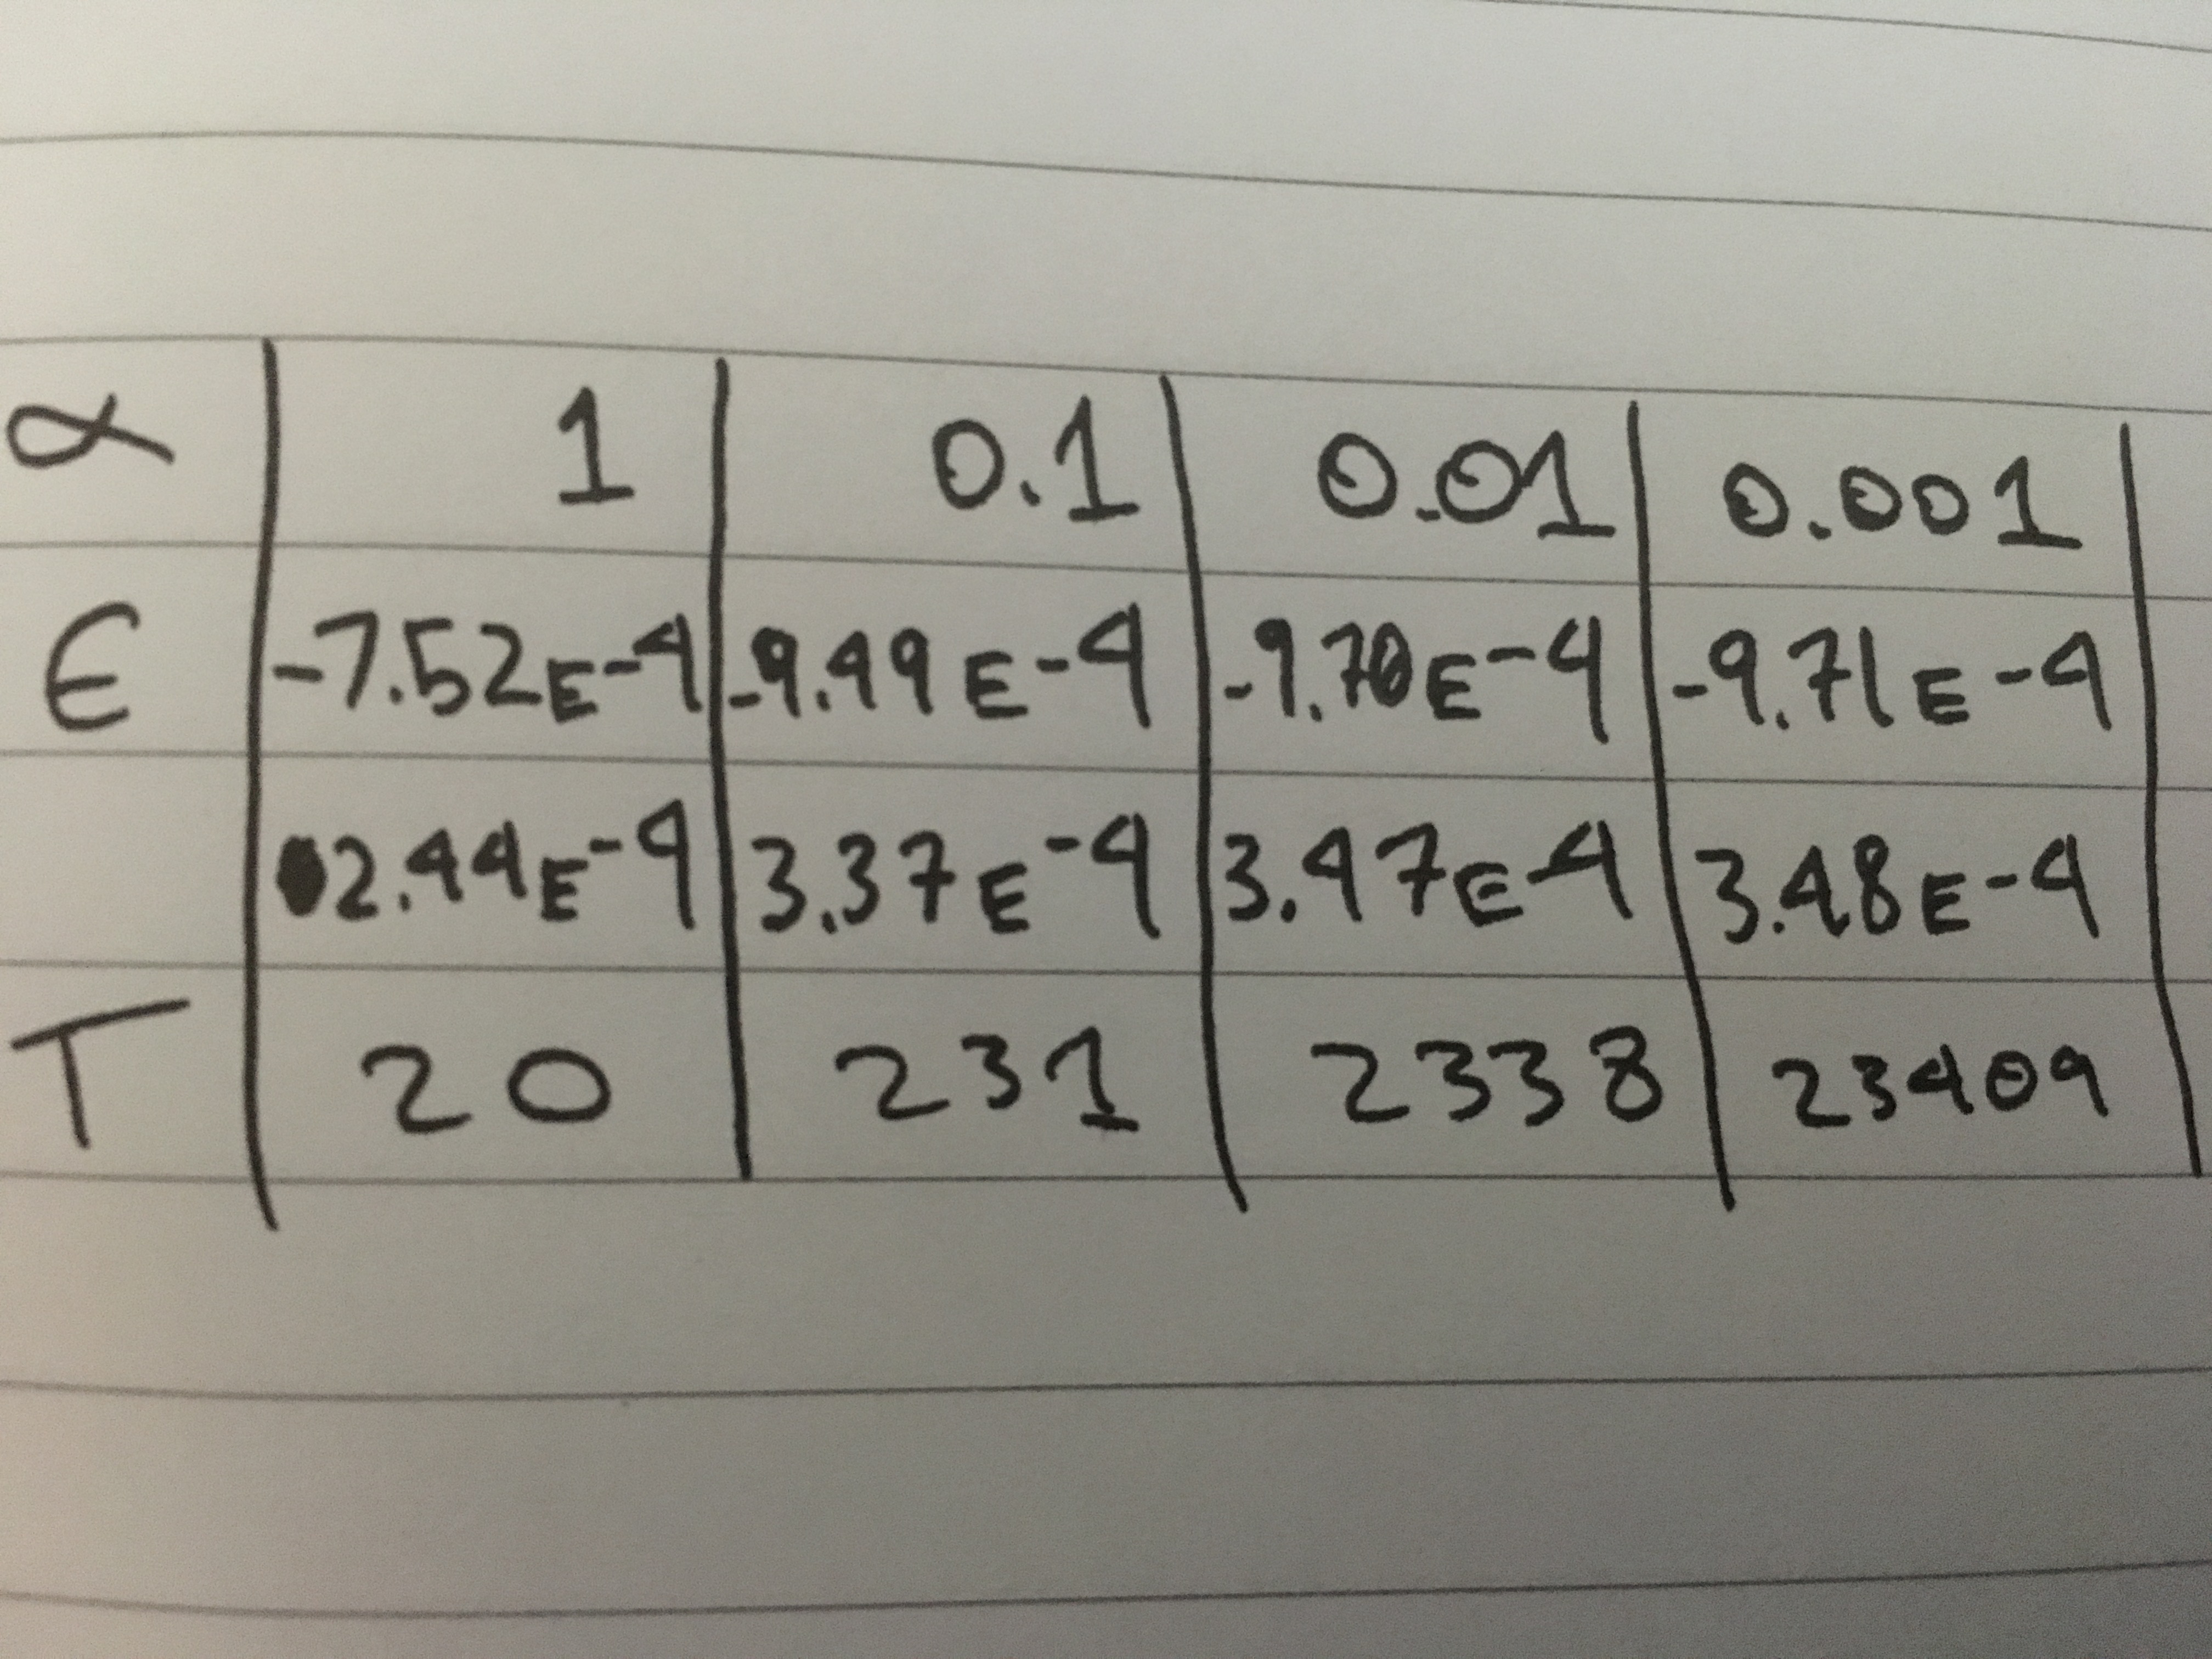 α 1 0.1 0.01 0.001
ϵ -7.52E-4 -9.49E-4 -9.70E-4 -9.71E-4
2.44E-4 3.37E-4 3.47E-4 3.48E-4
T 20 231 2338 23409